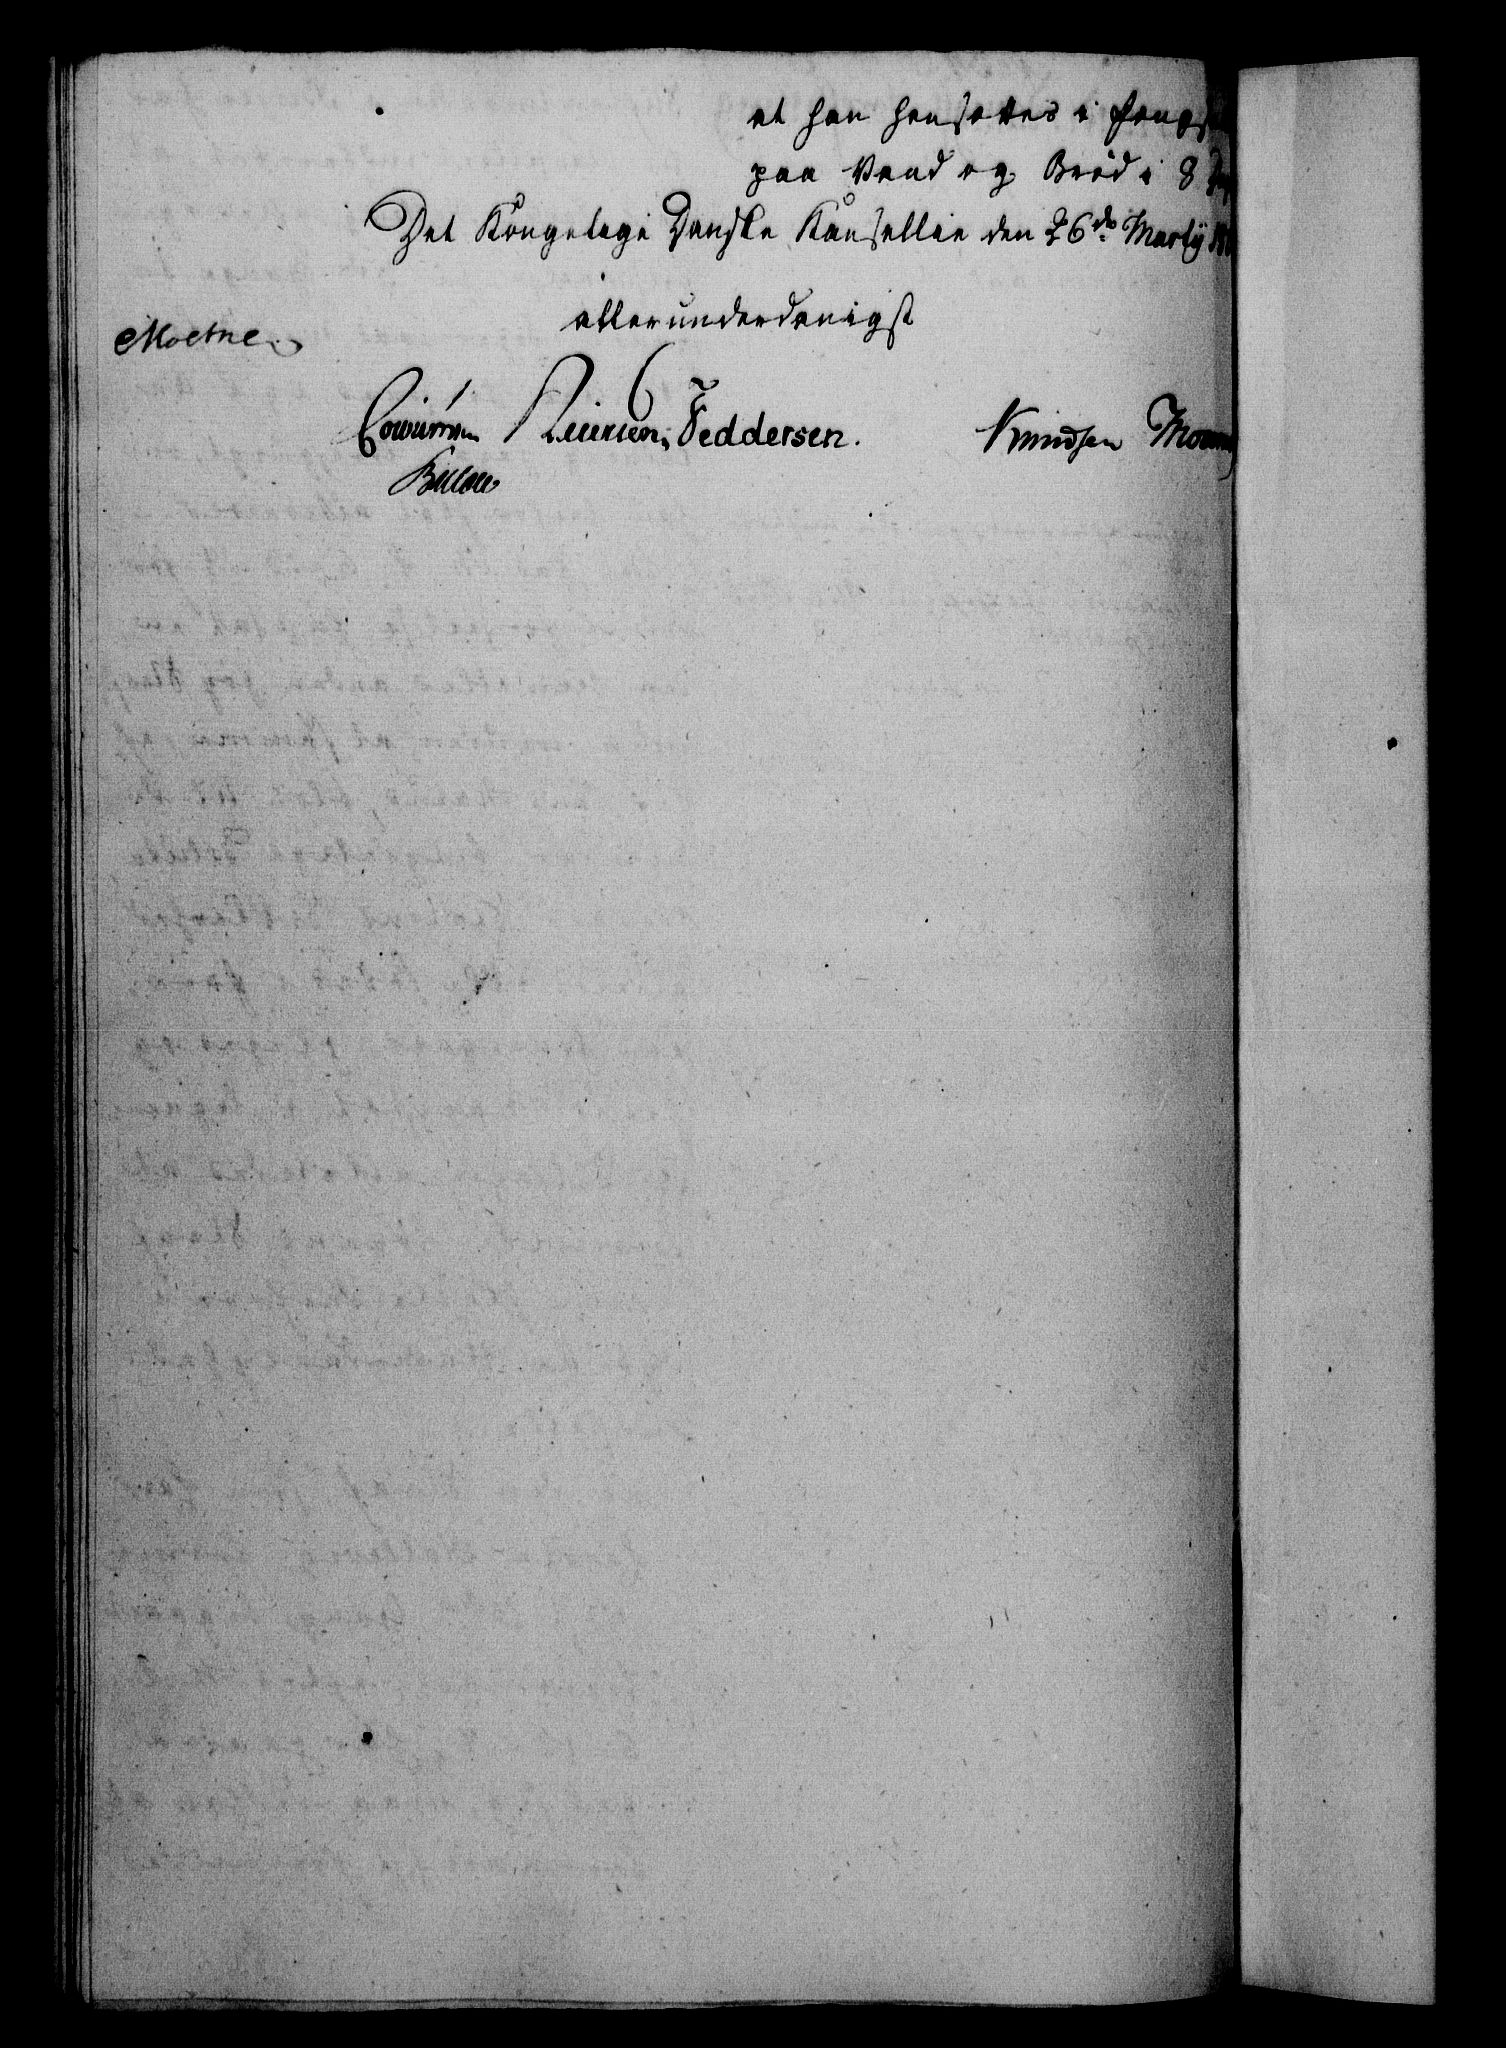 at han hensættes i Fængsel
paa Vand og Brød i 8
Det Kongelige Danske Kansellie den 26de Martÿ
allerunderdanigst
Moetne
Feddersen. Knudsen
Bülow